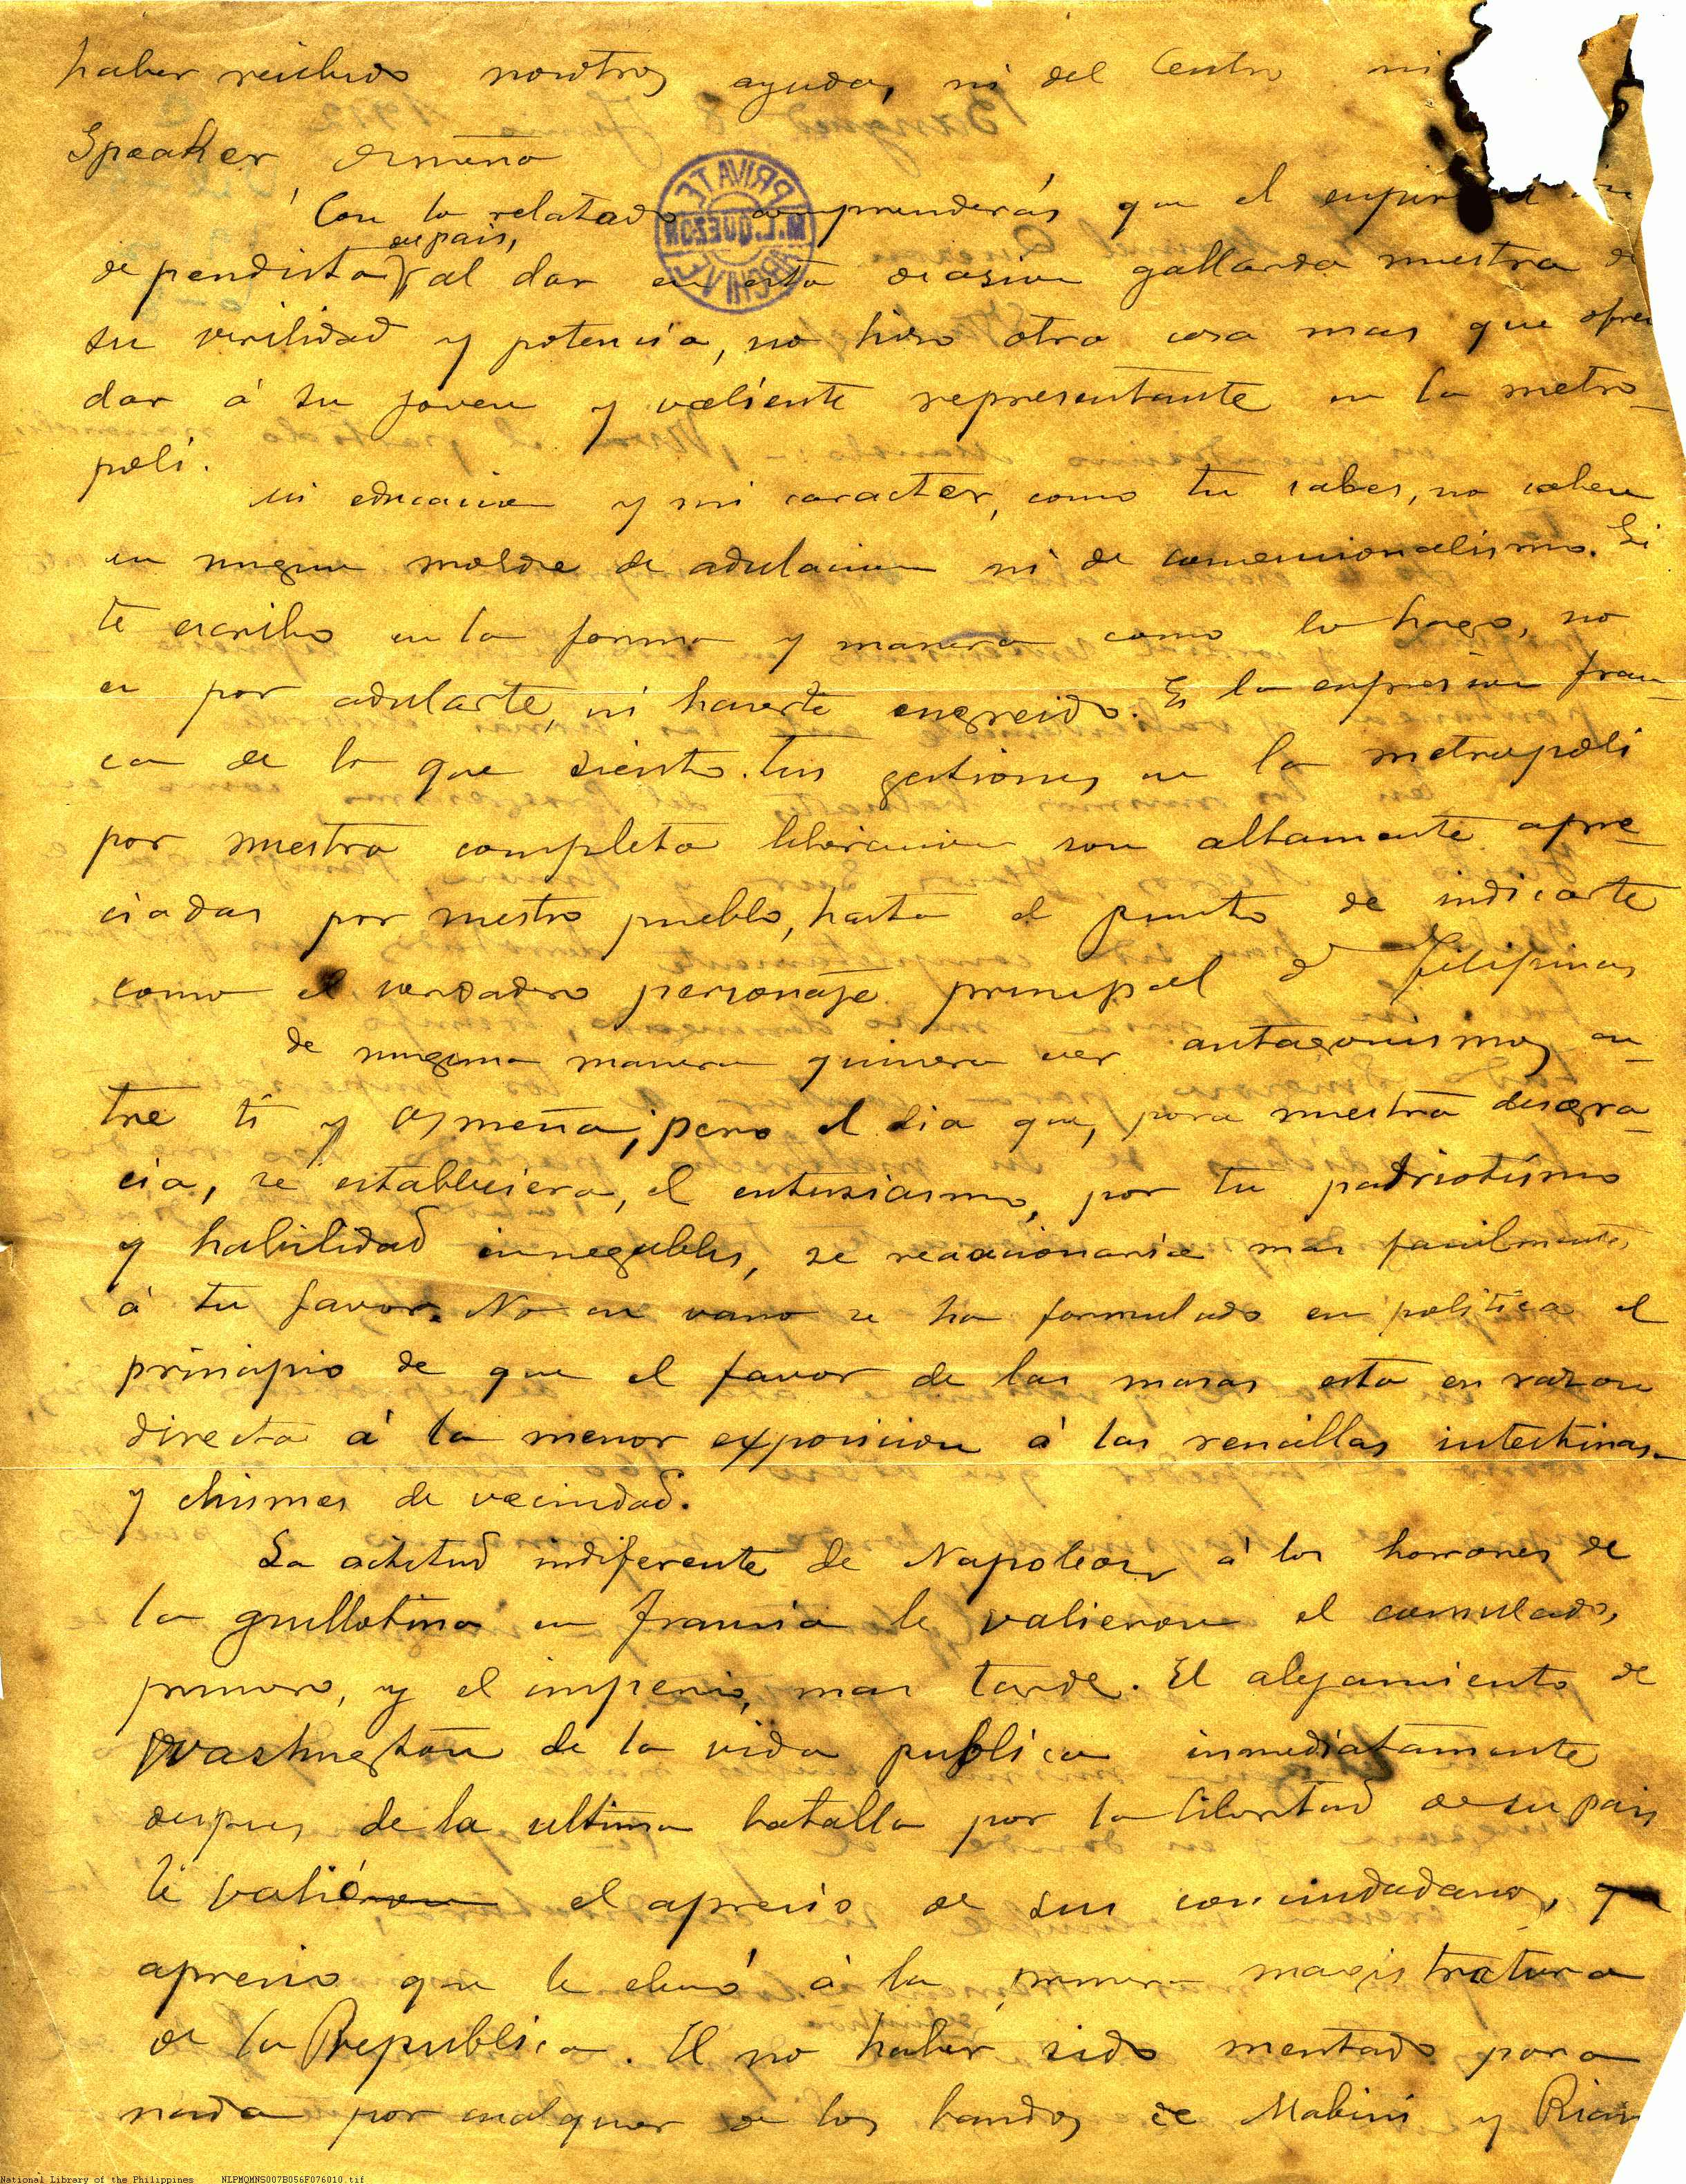 haber recibido nosotros ayuda, ni del Centro ni
Speaker Osmeña
Con lo relatado comprenderás que el
su pais,
dependista al dar en esta ocasion gallarda muestra de
su virilidad y potencia, no hizo otra cosa mas que
dar á su joven y valiente representante en la metro-
poli.
Mi educacion y mi caracter, como tu sabes, no caben
en ningun molde de adulacion ni de convencionalismo. Si
te escribo en la forma y manera como lo hago, no
es por adularte, ni hacerte engreido. Es la expresion fran-
ca de lo que siento. Tus gestiones en la metropoli
por nuestra completa liberacion son altamente apre-
ciadas por nuestro pueblo, hasta el punto de indicarte
como el verdadero personaje principal de Filipinas
De ninguna manera quisiera ver antagonismos en-
tre ti y Osmeña; pero el dia que, para nuestra desgra-
cia, se estableciera, el entusiasmo, por tu patriotismo
y habilidad innegables, se reaccionaria mas facilmente
á tu favor. No en vano se ha formulado en politica el
principio de que el favor de las masas esta en razon
directa á la menor exposicion á las rencillas intestinas
y chismes de vecindad.
La actitud indiferente de Napoleon á los horrores de
la guillotina en Francia le valieron el consulado,
primero, y el imperio, mas tarde. El alejamiento de
Washington de la vida publica inmediatamente
despues de la ultima batalla por la libertad de su pais
le valió el aprecio de sus conciudadanos,
aprecio que le elevó á la primera magistratura
de la Republica. El no haber sido mentado para
nada por cualquier de los bandos de Mabini y
PRIVATE
M. L. QUEZON
ARCHIVE
National Library of the Philippines NLPMQMNS007B056F076010.tif